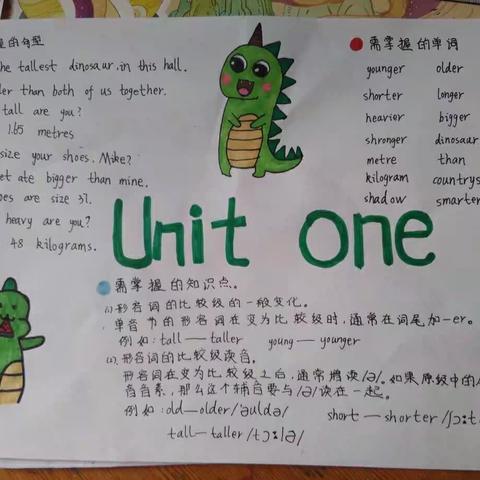 的句型
the tallest dinosaur in this hall.
than both of us together.
tall are you?
1.65 metres
size your shoes. Mike?
ate bigger than mine.
are size 37.
heavy are you?
48 kilograms.
需掌握的单词
younger older
shorter longer
heavier bigger
shronger dinosaur
metre than
kilogram countrys
shadow smarter
Unit one
需掌握的知识点。
(1).形容词的比较级的一般变化。
单音节的形容词在变为比较级时,通常在词尾加-er。
例如:tall—taller young—younger
(2).形容词的比较级读音。
形容词在变为比较级之后,通常增读/ə/。如果原级中的
音音素,那么这个辅音要与/ə/读在一起。
例如:old—older/'əuldə/ short—shorter/ʃɔ:t
tall—taller/tɔ:lə/